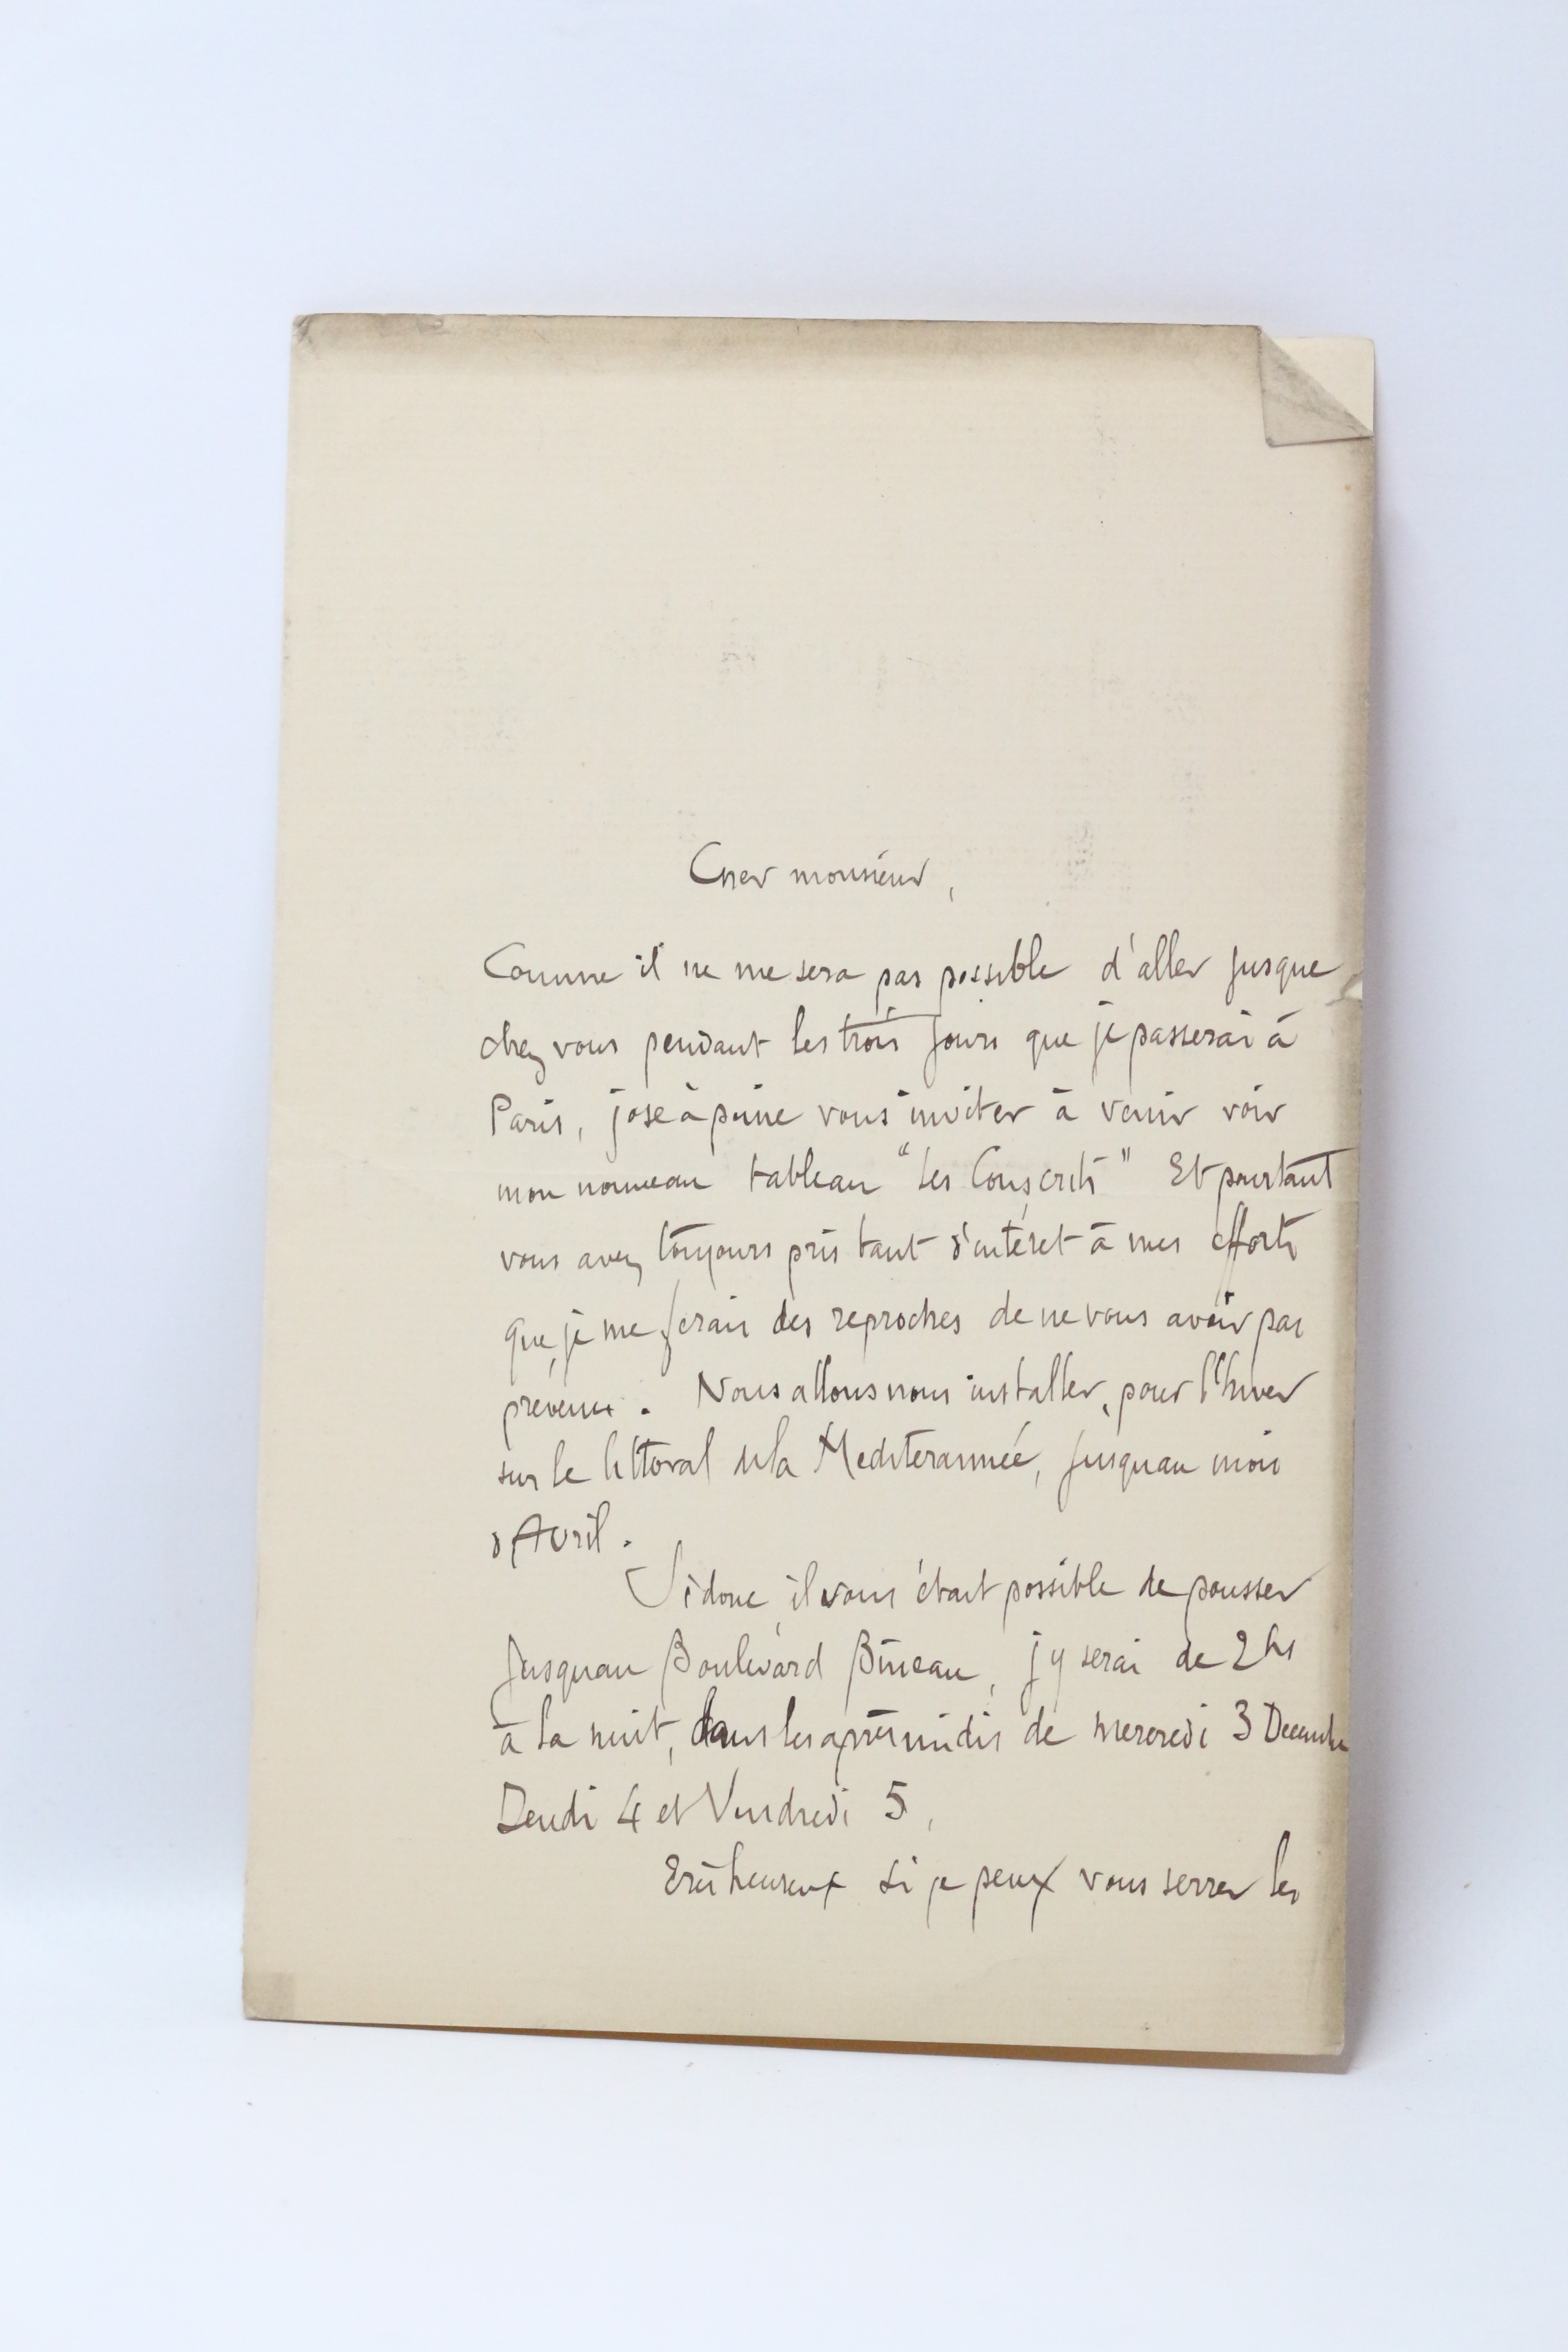 Cher monsieur,
Comme il ne me sera pas possible d'aller jusque
chez vous pendant les trois jours que je passerai à
Paris, j'ose à peine vous inviter à venir voir
mon nouveau tableau "Les Conscrits" Et pourtant
vous avez toujours pris tant d'intéret à mes efforts
que, je me ferais des reproches de ne vous avoir pas
prévenu. Nous allons nous installer, pour l'hiver
sur le littoral de la Mediterannée, jusquau mois
d'Avril.
Si donc, il vous était possible de pousser
jusquau Boulevard Bineau, j'y serai de 2 hs
à la nuit, dans les après midis de mercredi 3 Decembre
Jeudi 4 et Vendredi 5,
Très heureux si je peux vous serrer les